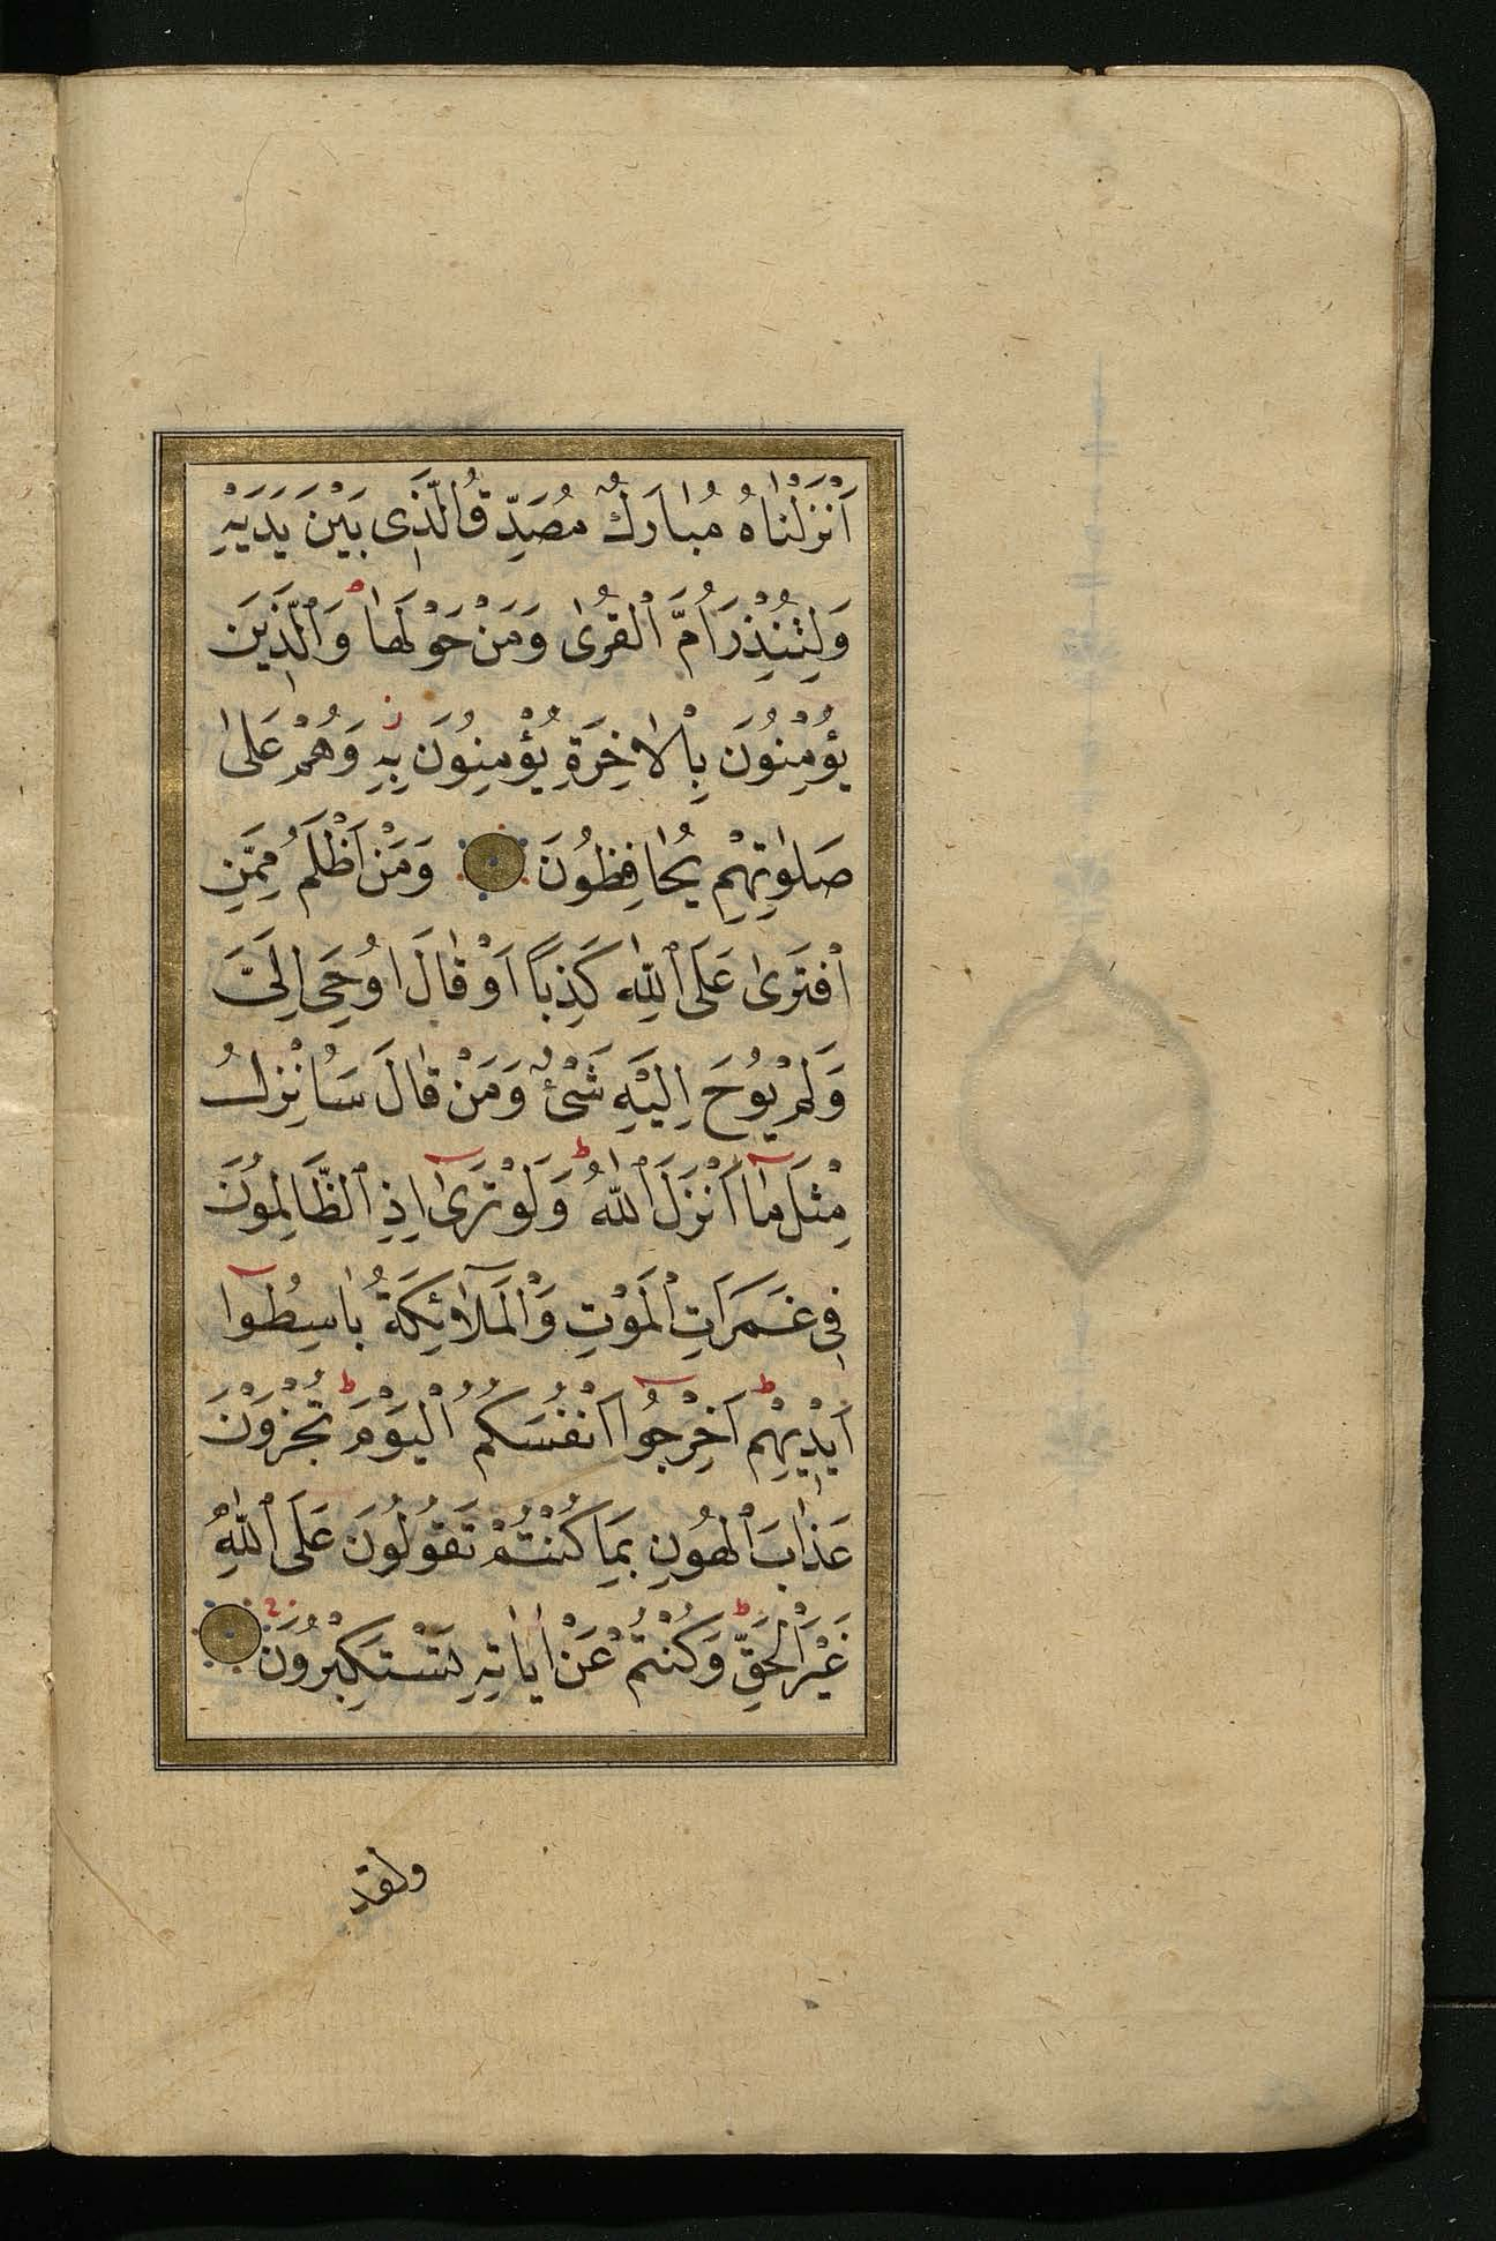 اَنْزَلْنَاهُ مُبَارَكٌ مُصَدِّقُ الَّذِى بَيْنَ يَدَيْهِ
وَلِتُنْذِرَ اُمَّ الْقُرٰى وَمَنْ حَوْلَهَا ۘ وَالَّذِينَ
يُؤْمِنُونَ بِالْاٰخِرَةِ يُؤْمِنُونَ بِهِ ز وَهُمْ عَلٰى
صَلٰوتِهِمْ يُحَافِظُونَ وَمَنْ اَظْلَمُ مِمَّنِ
افْتَرٰى عَلَى اللّٰهِ كَذِبًا اَوْ قَالَ اُوحِىَ اِلَىَّ
وَلَمْ يُوحَ اِلَيْهِ شَىْءٌ وَمَنْ قَالَ سَاُنْزِلُ
مِثْلَ مَآ اَنْزَلَ اللّٰهُ ط وَلَوْ تَرٰٓى اِذِ الظَّالِمُونَ
فِى غَمَرَاتِ الْمَوْتِ وَالْمَلٰٓائِكَةُ بَاسِطُوٓا
اَيْدِيهِمْ ط اَخْرِجُوٓا اَنْفُسَكُمُ ط الْيَوْمَ تُجْزَوْنَ
عَذَابَ الْهُونِ بِمَا كُنْتُمْ تَقُولُونَ عَلَى اللّٰهِ
غَيْرَ الْحَقِّ ط وَكُنْتُمْ عَنْ اٰيَاتِهِ تَسْتَكْبِرُونَ
ولقد